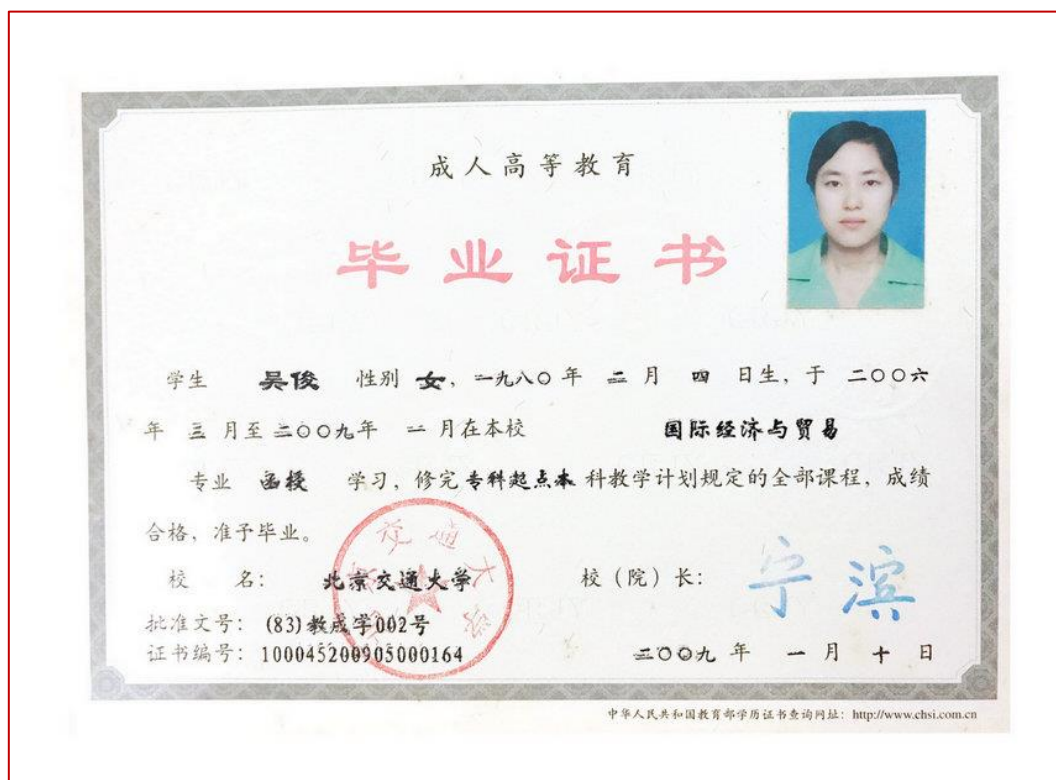 成人高等教育
毕业证书
学生 吴俊 性别 女，一九八〇年 二月 四日生，于二〇〇六
年 三月至二〇〇九年 一月在本校 国际经济与贸易
专业 函授 学习，修完专科起点本科教学计划规定的全部课程，成绩
合格，准予毕业。
校 名： 北京交通大学 校（院）长： 宁滨
批准文号：(83)教成学002号
证书编号：100045200905000164 二〇〇九年 一月十日
北京交通大学
中华人民共和国教育部学历证书查询网址：http://www.chsi.com.cn